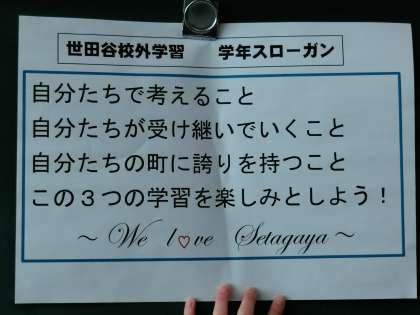 世田谷校外学習　学年スローガン
自分たちで考えること
自分たちが受け継いでいくこと
自分たちの町に誇りを持つこと
この３つの学習を楽しみとしよう！
～ We l♡ve Setagaya ～